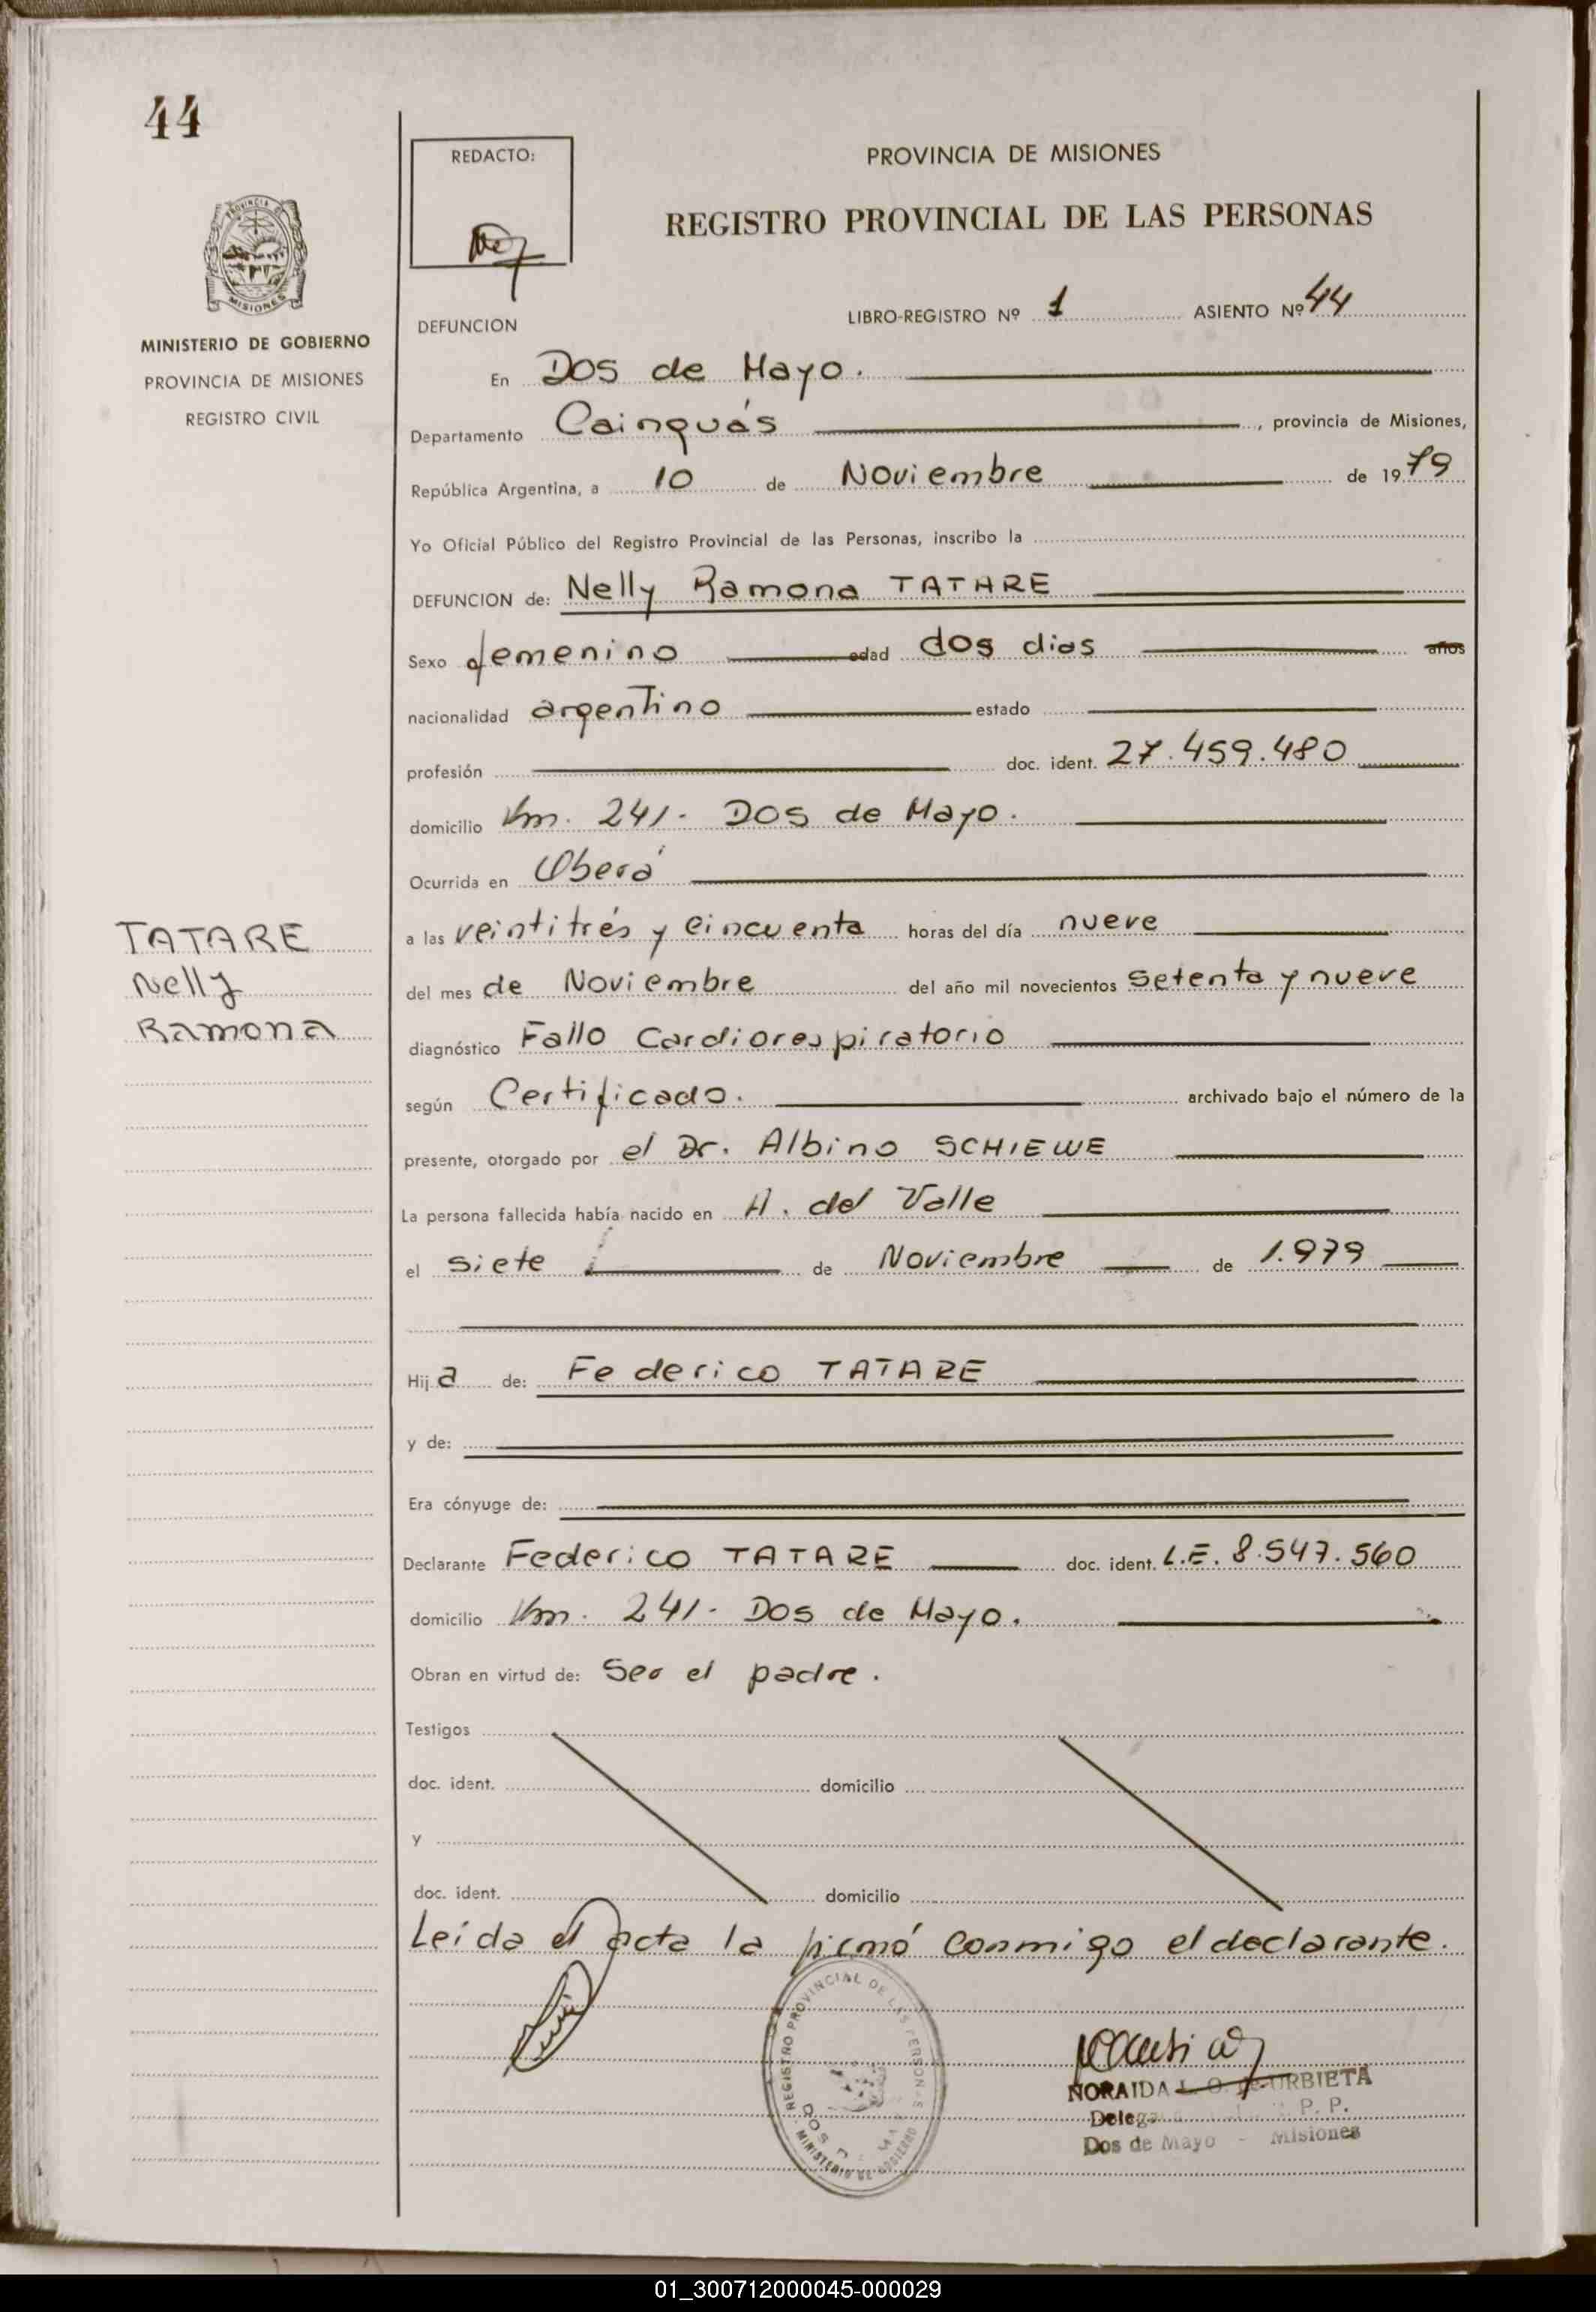 44
REDACTO:
PROVINCIA DE MISIONES
REGISTRO PROVINCIAL DE LAS PERSONAS
MINISTERIO DE GOBIERNO
PROVINCIA DE MISIONES
REGISTRO CIVIL
DEFUNCION
LIBRO-REGISTRO Nº 1 ASIENTO Nº 44
En Dos de Mayo.
Departamento Cainguás, provincia de Misiones,
República Argentina, a 10 de Noviembre de 1979
Yo Oficial Público del Registro Provincial de las Personas, inscribo la
DEFUNCION de: Nelly Ramona TATARE
Sexo femenino edad dos dias años
nacionalidad argentino estado
profesión doc. ident. 27.459.480
domicilio Km. 241- Dos de Mayo.
Ocurrida en Oberá
a las veintitrés y cincuenta horas del día nueve
del mes de Noviembre del año mil novecientos setenta y nueve
diagnóstico Fallo Cardiorespiratorio
según Certificado. archivado bajo el número de la
presente, otorgado por el Dr. Albino SCHIEWE
La persona fallecida había nacido en A. del Valle
el siete de Noviembre de 1.979
TATARE
Nelly
Ramona
Hija de: Federico TATARE
y de:
Era cónyuge de:
Declarante Federico TATARE doc. ident. L.E. 8.547.560
domicilio Km. 241- Dos de Mayo.
Obran en virtud de: Ser el padre.
Testigos
doc. ident. domicilio
y
doc. ident. domicilio
Leída el acta la firmó conmigo el declarante.
REGISTRO PROVINCIAL DE LAS PERSON S
MINISTERIO DE GOBIERNO
NORAIDA L. O. de URBIETA
P. P.
Dos de Mayo - Misiones
01_300712000045-000029